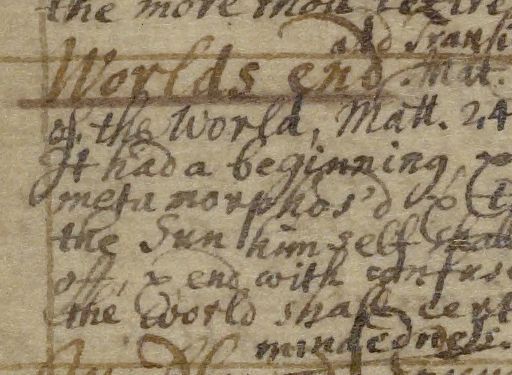 the more thou
add Transi
Worlds end Mat.
of the World, Matt. 24
It had a beginning, &
metamorphos'd &
the Sun himself shal
off, & end with confus
the World shall cert
mindedness.